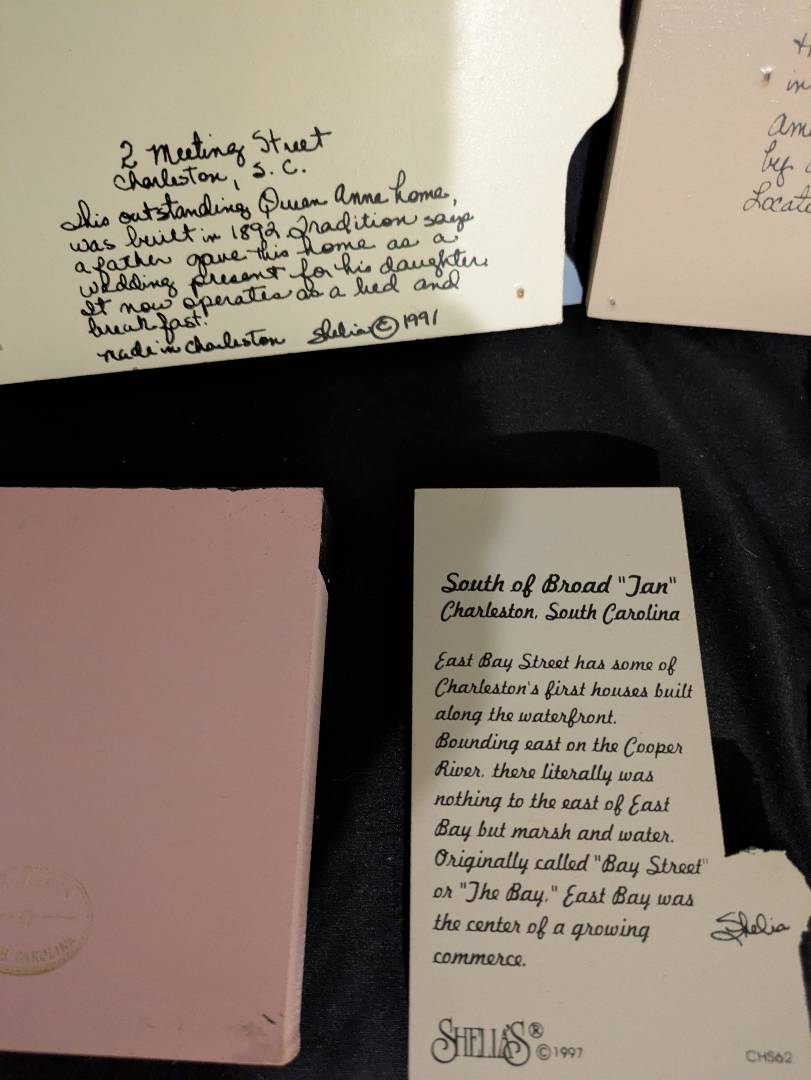 2 Meeting Street
Charleston, S. C.
This outstanding Queen Anne home,
was built in 1892. Tradition says
a father gave this home as a
wedding present for his daughter.
It now operates as a bed and
breakfast.
made in Charleston Shelia © 1991
in
by
South of Broad "Jan"
Charleston, South Carolina
East Bay Street has some of
Charleston's first houses built
along the waterfront.
Bounding east on the Cooper
River, there literally was
nothing to the east of East
Bay but marsh and water.
Originally called "Bay Street"
or "The Bay," East Bay was
the center of a growing
commerce.
Shelia
SHELIA'S® ©1997
CHS62